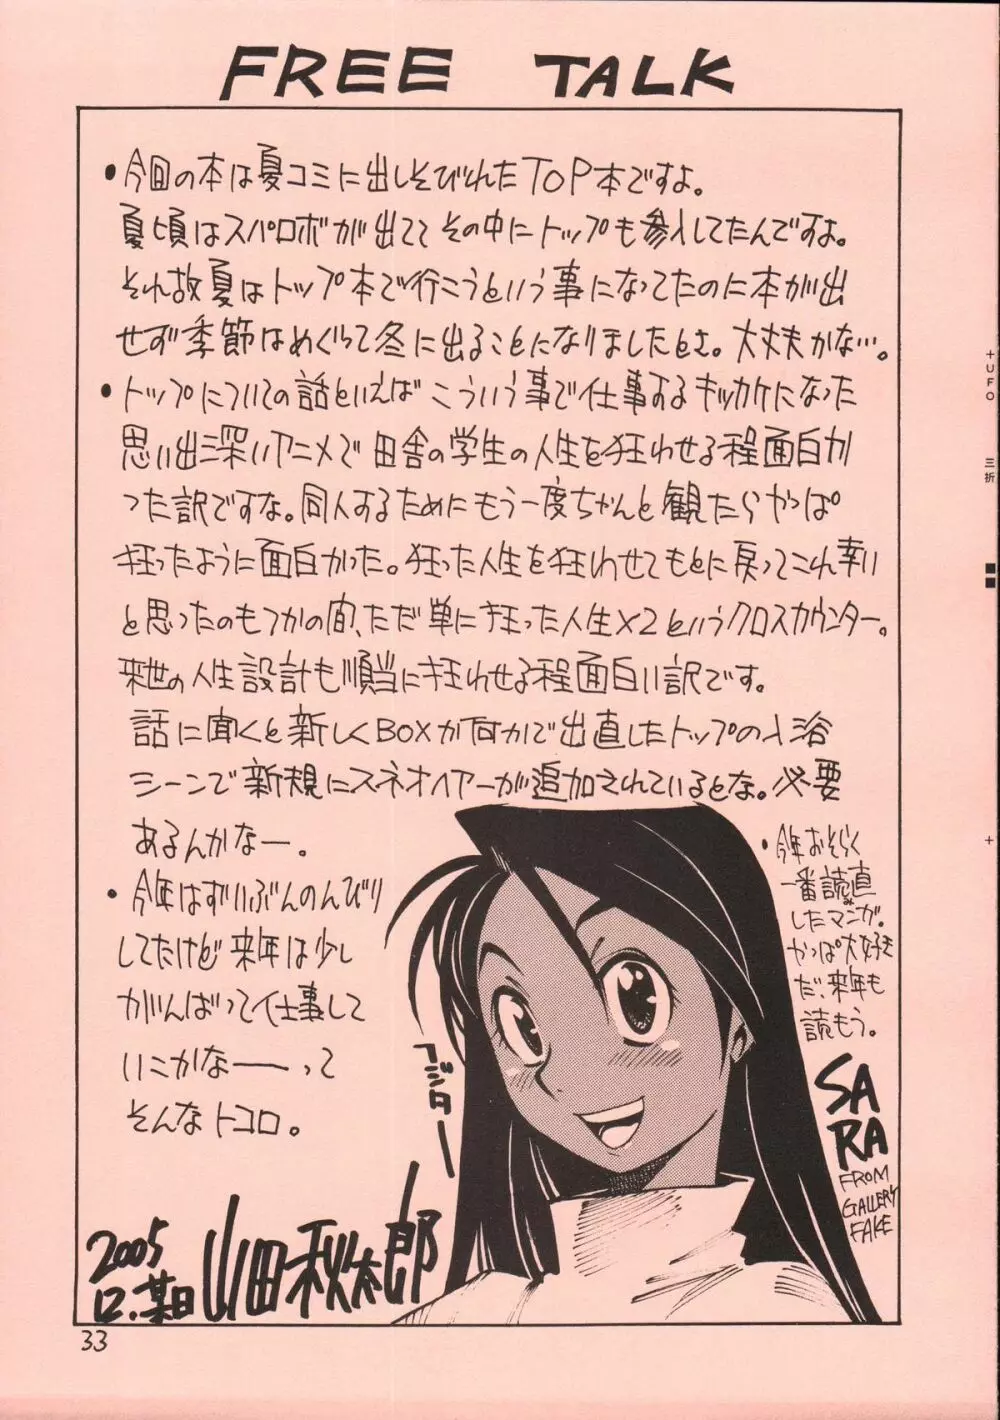 FREE TALK
・今回の本は夏コミに出しそびれたTOP本ですよ。
夏頃はスパロボが出ててその中にトップも参入してたんですよ。
それ故夏はトップ本で行こうという事になってたのに本が出
せず季節はめぐって冬に出ることになりましたとさ。大丈夫かな…。
・トップについての話といえばこういう事で仕事するキッカケになった
思い出深いアニメで田舎の学生の人生を狂わせる程面白か
った訳ですな。同人するためにもう一度ちゃんと観たらやっぱ
狂ったように面白かった。狂った人生を狂わせてもとに戻ってこれ幸い
と思ったのもつかの間、ただ単に狂った人生×2というクロスカウンター。
来世の人生設計も順当に狂わせる程面白い訳です。
話に聞くと新しくBOXか何かで出直したトップの入浴
シーンで新規にスネオヘアーが追加されているとな。必要
あるんかなー。
・今年はずいぶんのんびり
してたけど来年は少し
がんばって仕事して
いこかなーって
そんなトコロ。
・今年おそらく
一番読み直
したマンガ。
やっぱ大好き
だ、来年も
読もう。
SARA
FROM
GALLERY
FAKE
フジター
2005
12.某日
山田秋太郎
33
+UFO 三折